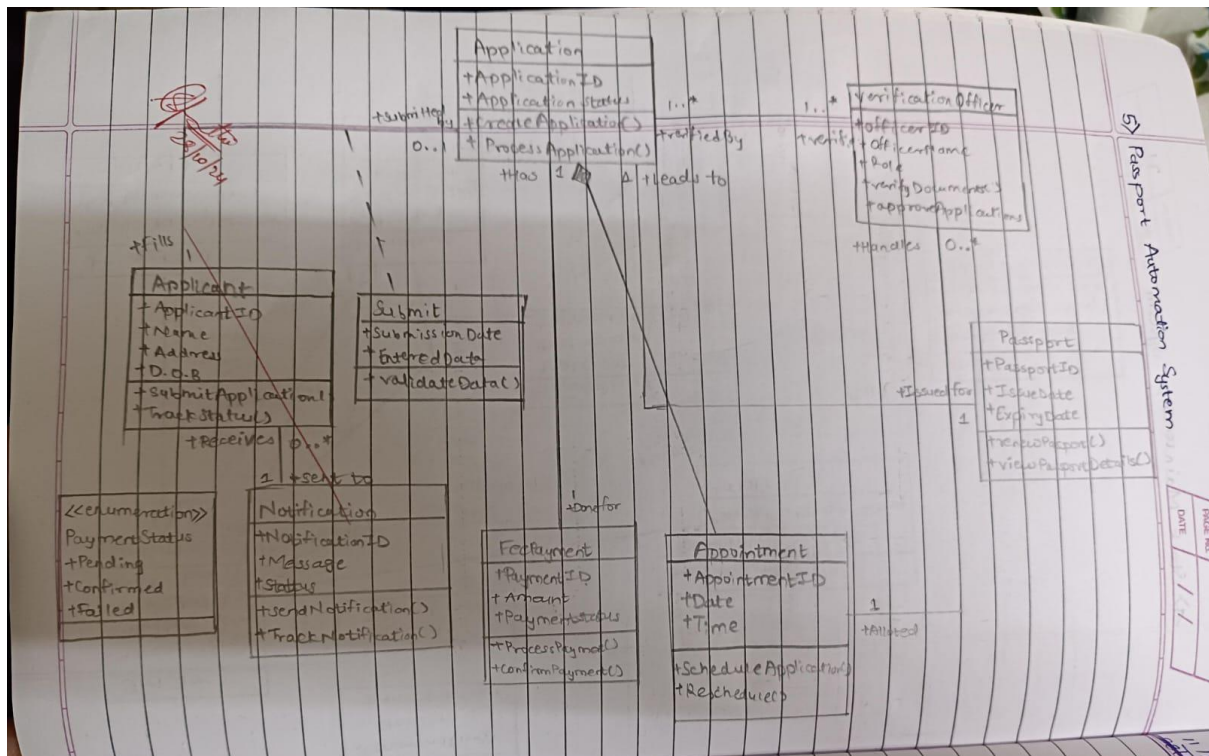 5) Passport Automation System
Application
+ApplicationID
+Application status
+CreateApplication()
+ProcessApplication()
+submitted by
0..1
1..*
+verified by
1..*
+verify
VerificationOfficer
+officerID
+Officername
+Role
+verifyDocuments()
+approveApplications
+Handles 0..*
+Has 1
+leads to
28/10/24
+fills
1
Applicant
+ApplicantID
+Name
+Address
+D.O.B
+SubmitApplication(
+TrackStatus()
+Receives 0..*
1 +sent to
Submit
+Submission Date
+EnteredData
+validateData()
Passport
+PassportID
+IssueDate
+ExpiryDate
+renewPassport()
+viewPassportDetails()
+Issued for
1
<<enumeration>>
PaymentStatus
+Pending
+Confirmed
+Failed
Notification
+NotificationID
+Message
+Status
+sendNotification()
+TrackNotification()
1
+Done for
FeePayment
+PaymentID
+Amount
+Paymentstatus
+ProcessPayment()
+ConfirmPayment()
Appointment
+AppointmentID
+Date
+Time
+ScheduleApplication()
+Reschedule()
1
+Alloted
PAGE NO.
DATE